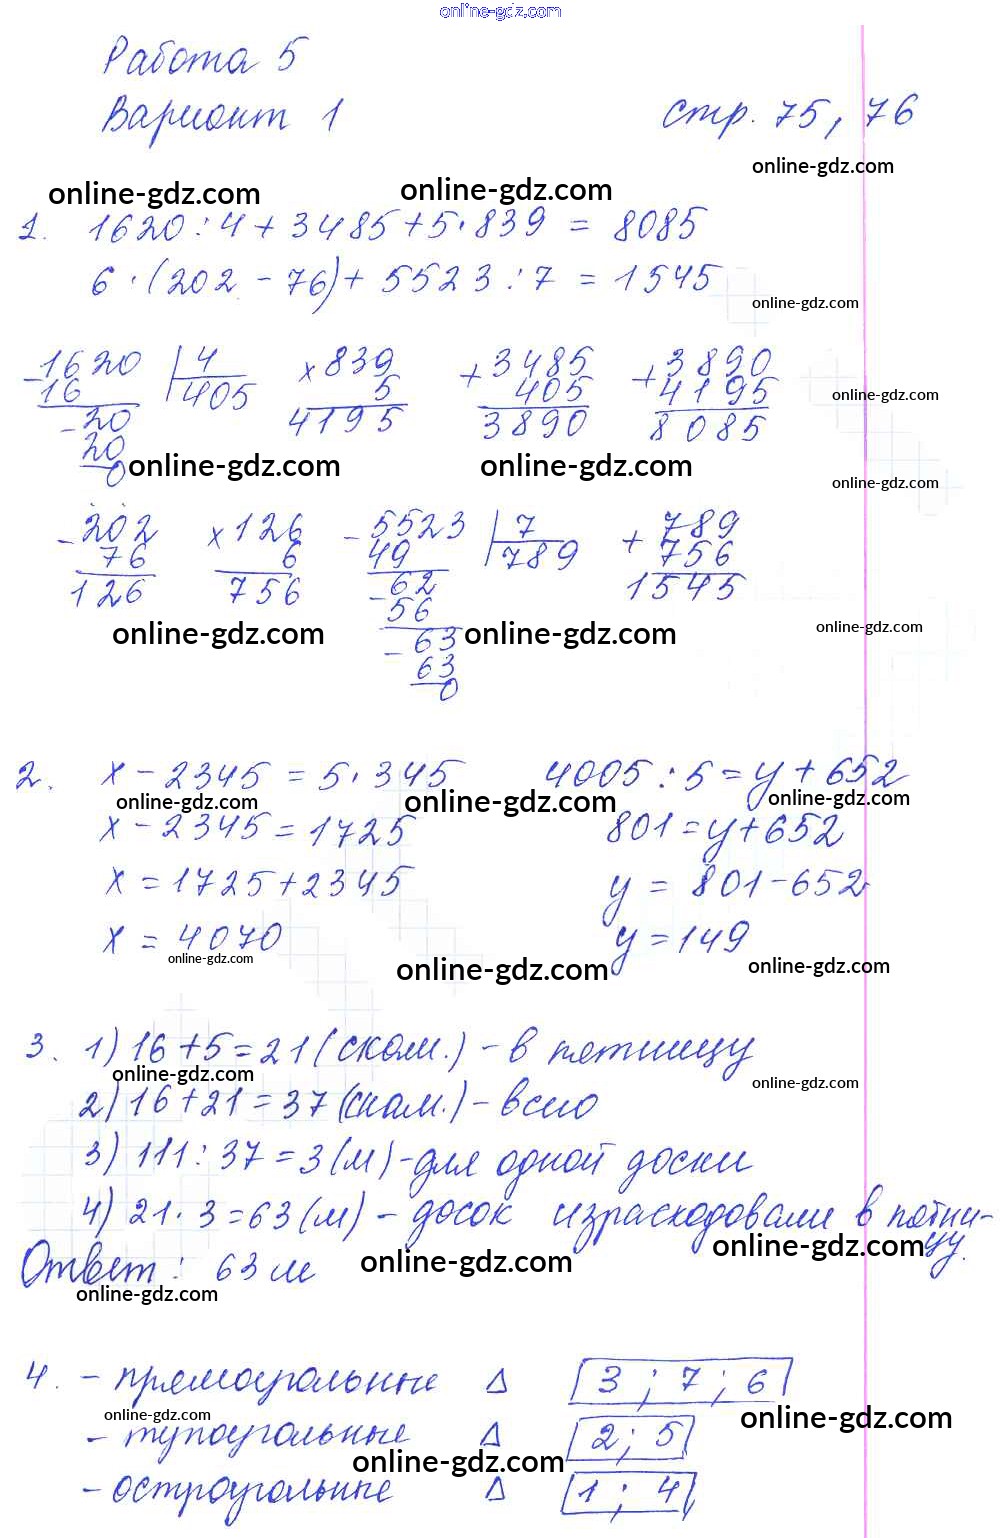 online-gdz.com
Работа 5
Вариант 1 стр. 75, 76
online-gdz.com
online-gdz.com online-gdz.com
1. 1620 : 4 + 3485 + 5 · 839 = 8085
6 · (202 - 76) + 5523 : 7 = 1545
online-gdz.com
- 1620 | 4 × 839 + 3485 + 3890
16 405 5 405 4195
- 20 4195 3890 8085
20
0
online-gdz.com
online-gdz.com online-gdz.com
online-gdz.com
- 202 × 126 - 5523 | 7 + 789
76 6 49 789 756
126 756 - 62 1545
56
- 63
63
0
online-gdz.com online-gdz.com online-gdz.com
2. x - 2345 = 5 · 345 4005 : 5 = y + 652
online-gdz.com online-gdz.com online-gdz.com
x - 2345 = 1725 801 = y + 652
x = 1725 + 2345 y = 801 - 652
x = 4070 y = 149
online-gdz.com online-gdz.com online-gdz.com
3. 1) 16 + 5 = 21 (скам.) - в пятницу
online-gdz.com online-gdz.com
2) 16 + 21 = 37 (скам.) - всего
3) 111 : 37 = 3 (м) - для одной доски
4) 21 · 3 = 63 (м) - досок израсходовали в пятни-
цу.
online-gdz.com online-gdz.com
Ответ : 63 м
online-gdz.com
4. - прямоугольные Δ 3 ; 7 ; 6
online-gdz.com online-gdz.com
- тупоугольные Δ 2 ; 5
online-gdz.com
- остроугольные Δ 1 ; 4
online-gdz.com